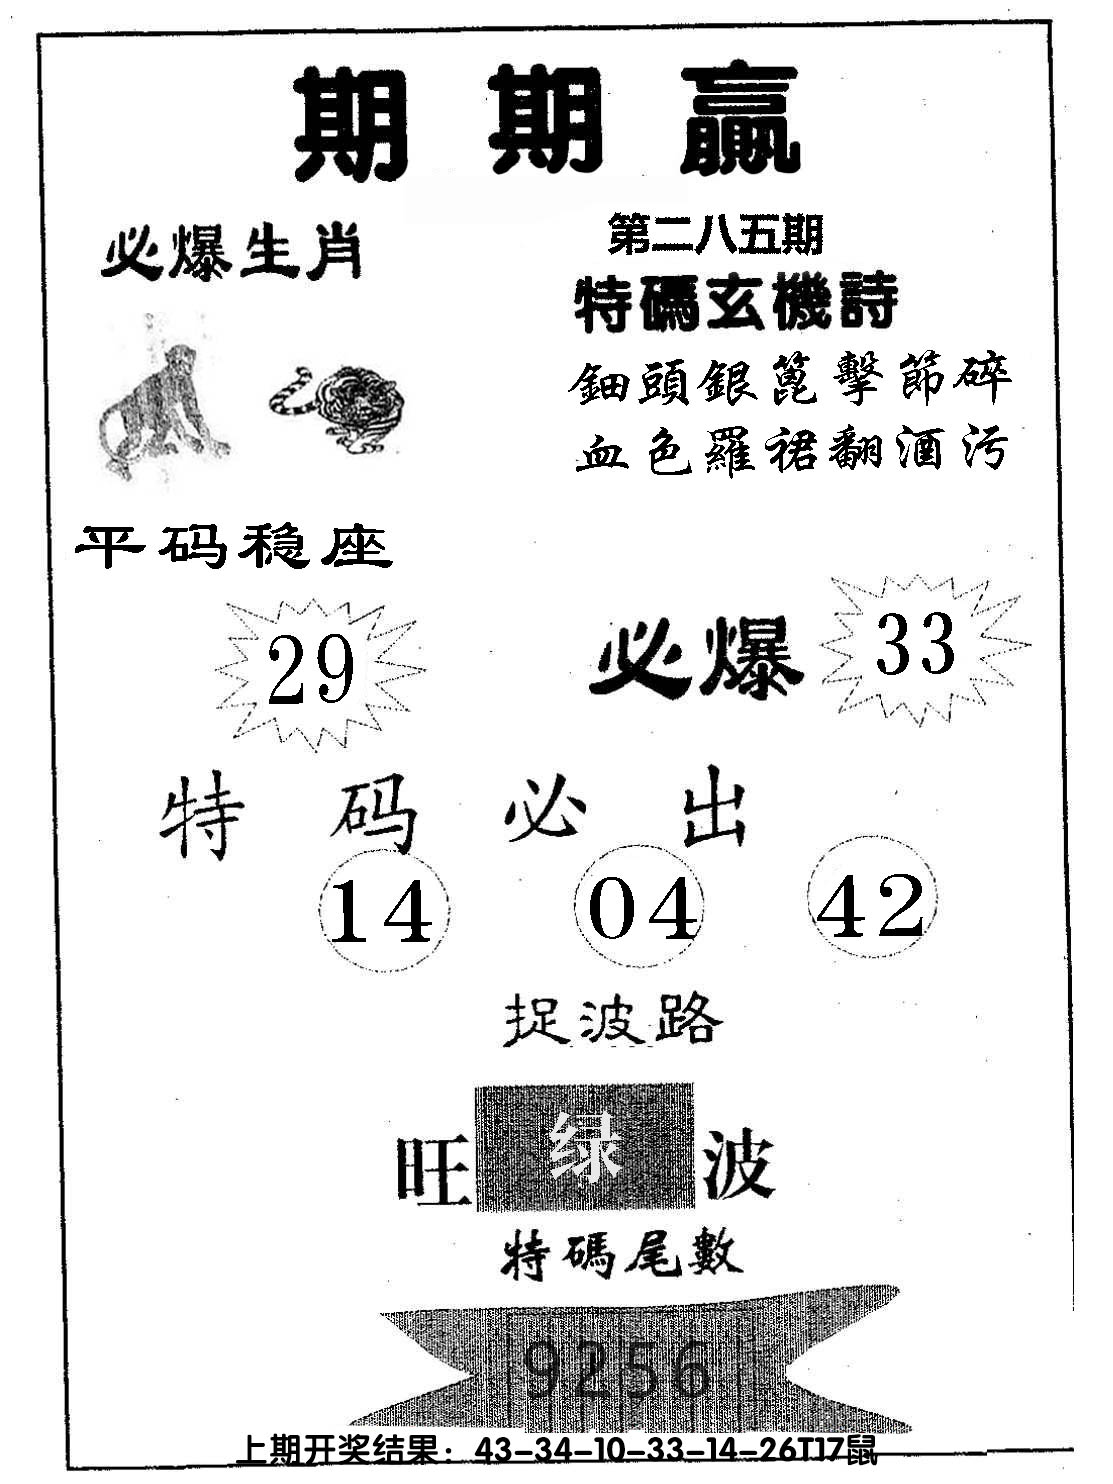 期期赢
必爆生肖
第二八五期
特碼玄機詩
鈿頭銀篦擊節碎
血色羅裙翻酒污
平码稳座
29
必爆 33
特码必出
14 04 42
捉波路
旺 绿 波
特碼尾數
9256
上期开奖结果：43-34-10-33-14-26T17鼠